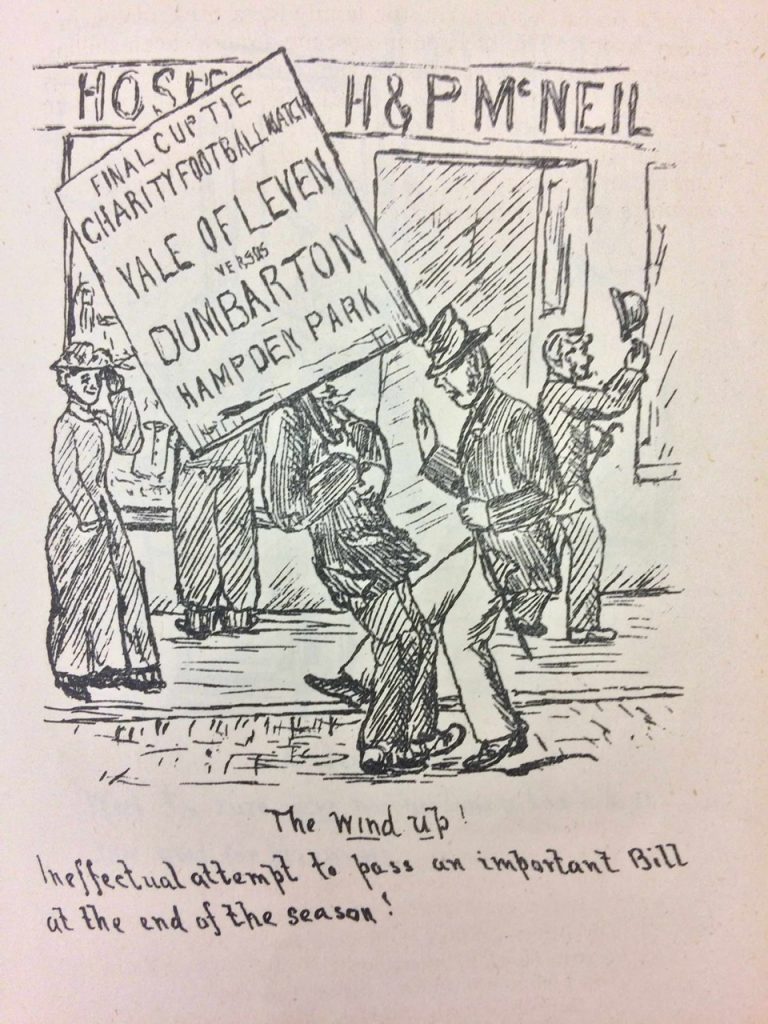 H&P McNEIL
FINAL CUP TIE
CHARITY FOOTBALL MATCH
VALE OF LEVEN
VERSUS
DUMBARTON
HAMPDEN PARK
The wind up!
Ineffectual attempt to pass an important Bill
at the end of the season!